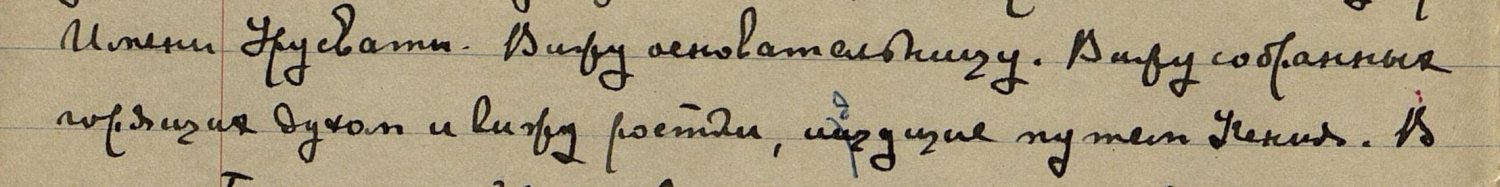 Имени Урусвати. Вижу основательницу. Вижу собранных
горящих духом и вижу ростки, идущие путем Кения. В